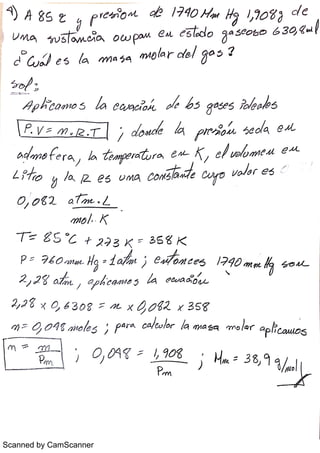 9) A 85 ℃ y presión de 1740 Mm Hg 1,908g de
una sustancia ocupan en estado gaseoso 630,8 ml
¿Cuál es la masa molar del gas?
Sol:
Aplicamos la ecuación de los gases ideales
P.V = n.R.T ; donde la presión seda en
admosfera, la temperatura en K, el volumen en
Litro y la R es una constante cuyo valor es :
0,082 atm.L
mol. K
T= 85°C + 273 K = 358 K
P = 760 mm Hg = 1 atm ; entonces 1740 mm Hg son
2,28 atm, aplicamos la ecuación
2,28 x 0,6308 = n x 0,082 x 358
n= 0,048 moles ; para calcular la masa molar aplicamos
n = m
Pm
; 0,049 = 1,908
Pm
; Mm = 38,9 g/mol
Scanned by CamScanner